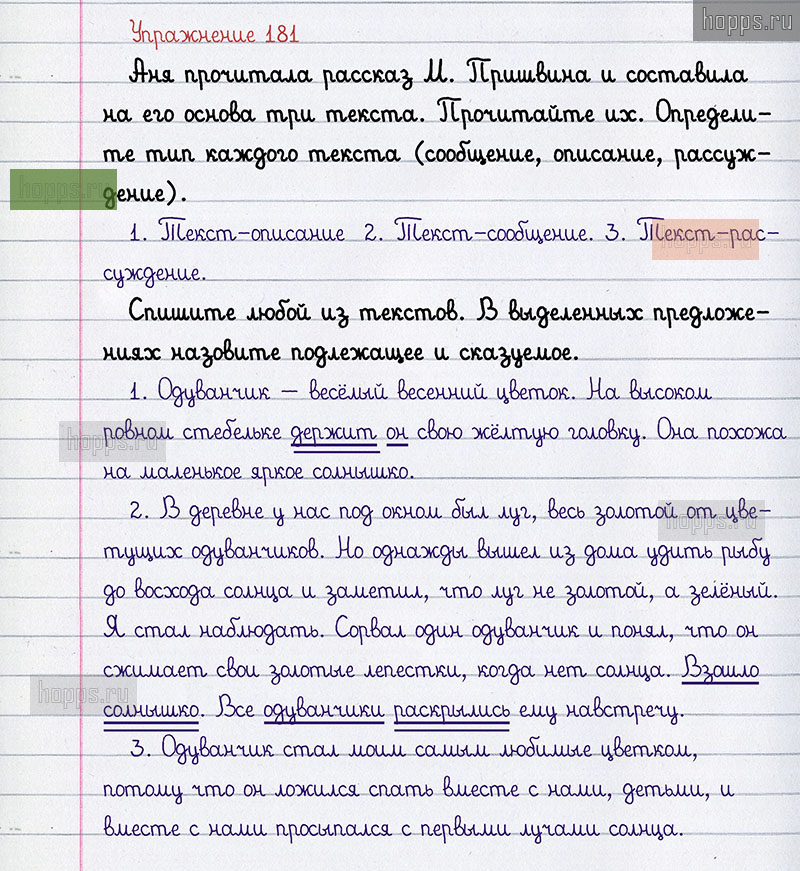 hopps.ru
Упражнение 181
Аня прочитала рассказ М. Пришвина и составила
на его основа три текста. Прочитайте их. Определи-
те тип каждого текста (сообщение, описание, рассуж-
hopps.ru
дение).
1. Текст-описание 2. Текст-сообщение. 3. Текст-рас-
hopps.ru
суждение.
Спишите любой из текстов. В выделенных предложе-
ниях назовите подлежащее и сказуемое.
1. Одуванчик – весёлый весенний цветок. На высоком
hopps.ru
ровном стебельке держит он свою жёлтую головку. Она похожа
на маленькое яркое солнышко.
2. В деревне у нас под окном был луг, весь золотой от цве-
hopps.ru
тущих одуванчиков. Но однажды вышел из дома удить рыбу
до восхода солнца и заметил, что луг не золотой, а зелёный.
Я стал наблюдать. Сорвал один одуванчик и понял, что он
сжимает свои золотые лепестки, когда нет солнца. Взошло
hopps.ru
солнышко. Все одуванчики раскрылись ему навстречу.
3. Одуванчик стал моим самым любимые цветком,
потому что он ложился спать вместе с нами, детьми, и
вместе с нами просыпался с первыми лучами солнца.